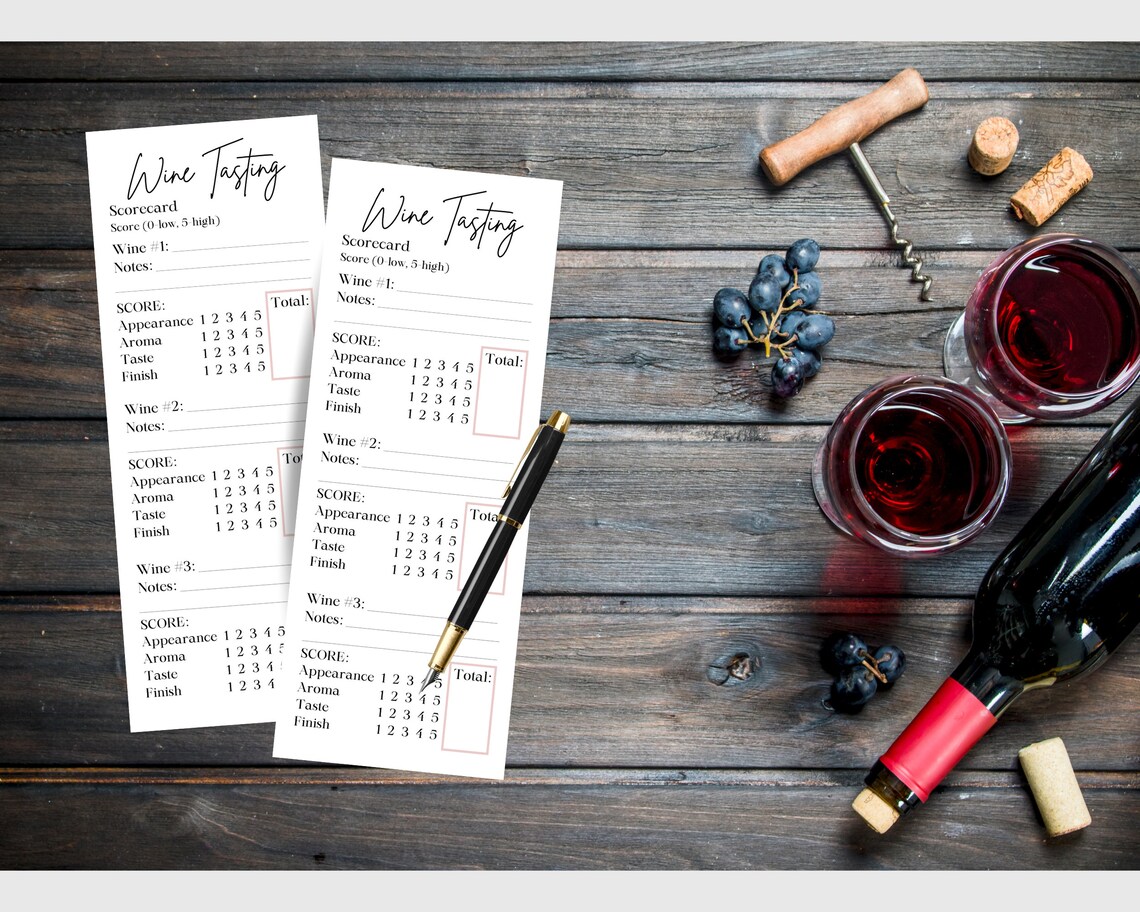 Wine Tasting
Scorecard
Score (0-low, 5-high)
Wine #1:
Notes:
SCORE:
Total:
Appearance 1 2 3 4 5
Aroma 1 2 3 4 5
Taste 1 2 3 4 5
Finish 1 2 3 4 5
Wine #2:
Notes:
SCORE:
Appearance 1 2 3 4 5
Aroma 1 2 3 4 5
Taste 1 2 3 4 5
Finish 1 2 3 4 5
Wine #3:
Notes:
SCORE:
Appearance 1 2 3 4 5
Aroma 1 2 3 4
Taste 1 2 3 4
Finish 1 2 3 4
Wine Tasting
Scorecard
Score (0-low, 5-high)
Wine #1:
Notes:
SCORE:
Total:
Appearance 1 2 3 4 5
Aroma 1 2 3 4 5
Taste 1 2 3 4 5
Finish 1 2 3 4 5
Wine #2:
Notes:
SCORE:
Appearance 1 2 3 4 5
Aroma 1 2 3 4 5
Taste 1 2 3 4 5
Finish 1 2 3 4 5
Wine #3:
Notes:
SCORE:
Total:
Appearance 1 2 3 5
Aroma 1 2 3 4 5
Taste 1 2 3 4 5
Finish 1 2 3 4 5